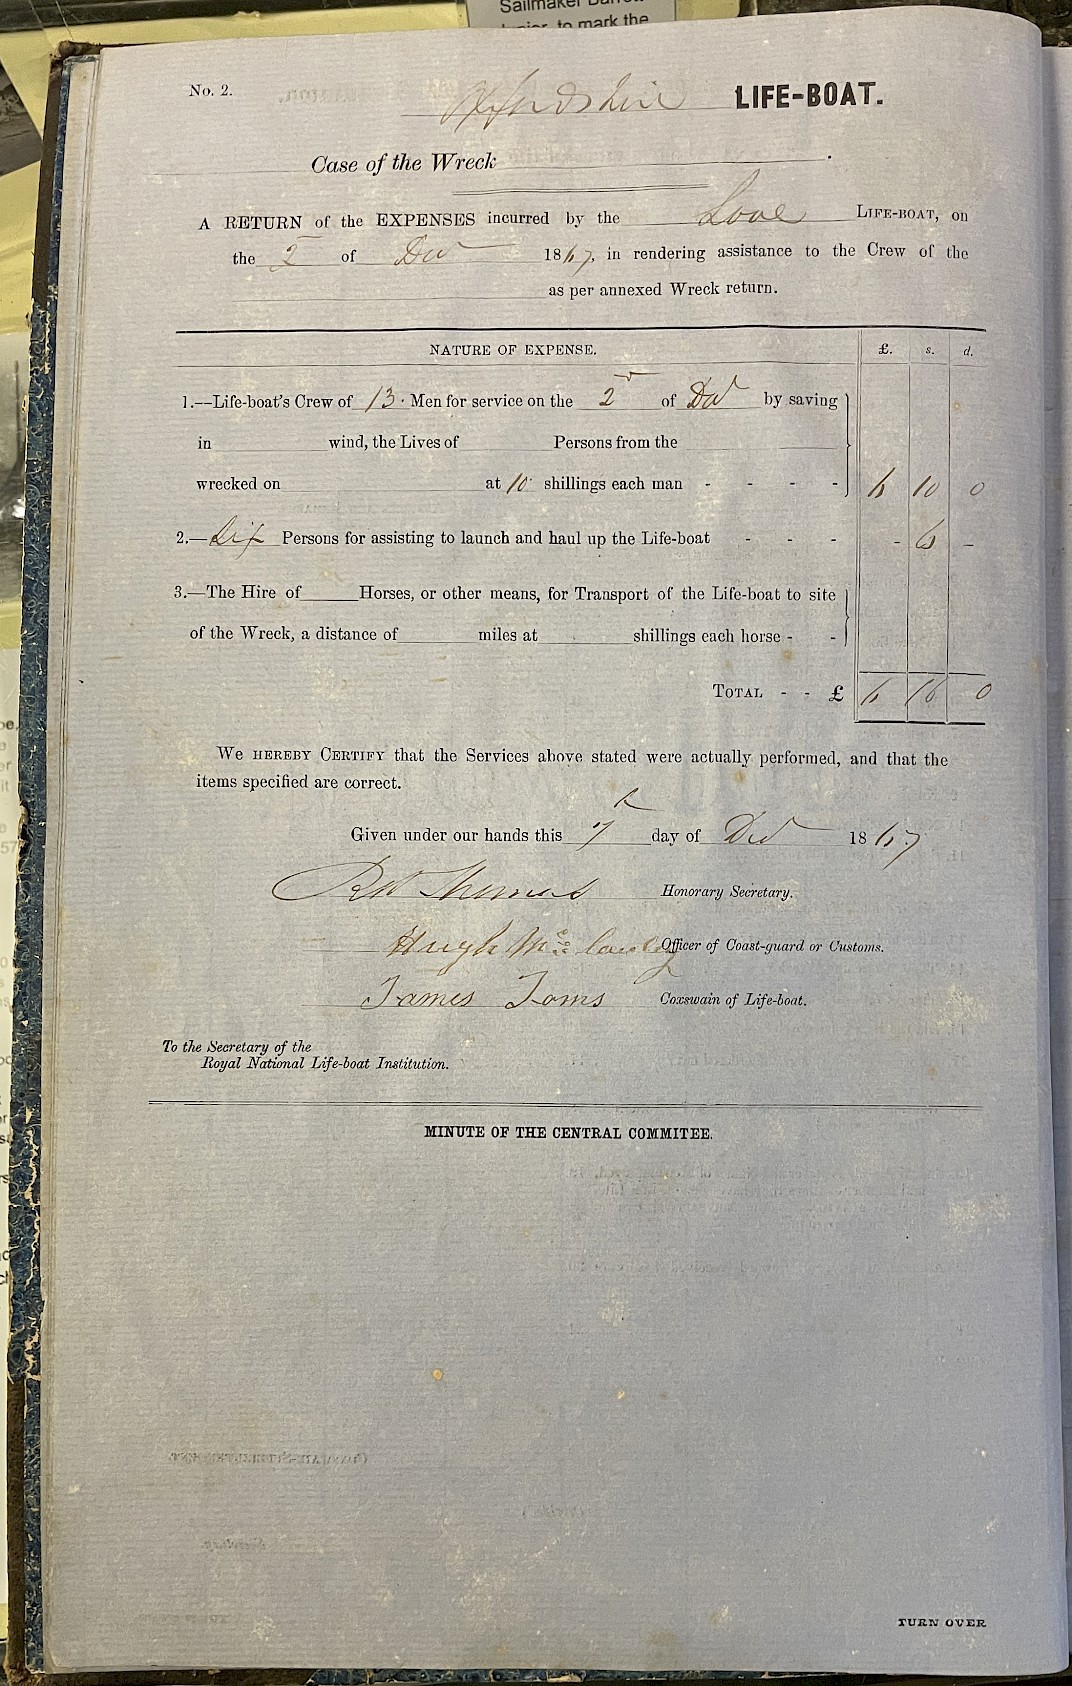 Sailmaker
to mark the
No. 2. Oxfordshire LIFE-BOAT.
Case of the Wreck .
A RETURN of the EXPENSES incurred by the Looe LIFE-BOAT, on
the 2 of Dec 1867, in rendering assistance to the Crew of the
as per annexed Wreck return.
NATURE OF EXPENSE. £. s. d.
1.—Life-boat's Crew of 13 Men for service on the 2 of Dec by saving
in wind, the Lives of Persons from the
wrecked on at 10 shillings each man - - - - 6 10 0
2.—Six Persons for assisting to launch and haul up the Life-boat - - - - 6 -
3.—The Hire of Horses, or other means, for Transport of the Life-boat to site
of the Wreck, a distance of miles at shillings each horse - -
TOTAL - - £ 6 16 0
WE HEREBY CERTIFY that the Services above stated were actually performed, and that the
items specified are correct.
Given under our hands this 7th day of Dec 1867
Thomas Honorary Secretary.
Hugh Officer of Coast-guard or Customs.
James Toms Coxswain of Life-boat.
To the Secretary of the
Royal National Life-boat Institution.
MINUTE OF THE CENTRAL COMMITEE.
TURN OVER